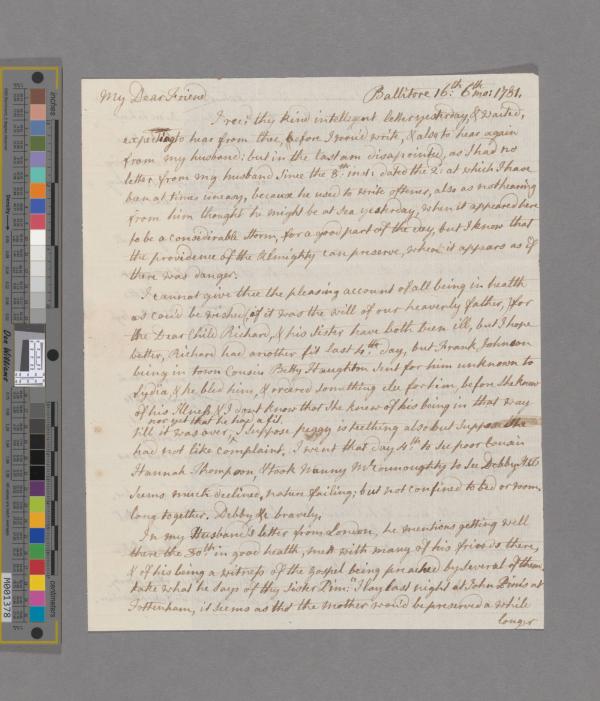 My Dear Friend Ballitore 16th: 6th mo: 1781.
I recd thy kind intelligent letter yesterday, & waited,
expecting to hear from thee, before I would write, & also to hear again
from my husband; but in the last am disapointed, as I had no
letter from my husband Since the 8th inst: dated the 2d: at which I have
been at times uneasy, because he used to write oftener, also as not hearing
from him thought he might be at Sea yesterday, when it appeared here
to be a considerable Storm, for a good part of the day, but I know that
the providence of the Almighty can preserve, when it appears as if
there was danger.
I cannot give thee the pleasing account of all being in health
as could be wished, (if it was the will of our heavenly father,) for
the Dear Child Richard, & his Sister have both been ill, but I hope
better, Richard had another fit last 4th day, but Frank Johnson
being in town Cousin Betty Haughton Sent for him unknown to
Lydia, & he bled him, & ordered something else for him, before She knew
of his Illness & I dont know that She knew of his being in that way
nor yet that he had a fit
till it was over, I Suppose peggy is teething also but Suppose She
had not like complaint, I went that day 4th to See poor Cousin
Hannah Thompson, & took Nanny McConnoughty to See Debby,
Seems much declined, nature failing; but not confined to bed or room
long together. Debby &c bravely.
In my Husband's letter from London, he mentions getting well
there the 30th in good health, met with many of his friends there,
& of his being a witness of the Gospel being preached by Several of them
take what he Says of thy Sister Pim: "I lay last night at John Pim's at
Tottenham, it Seems as tho the mother would be preserved a while
longer
inches
centimeters
Density
Don Williams
M001378